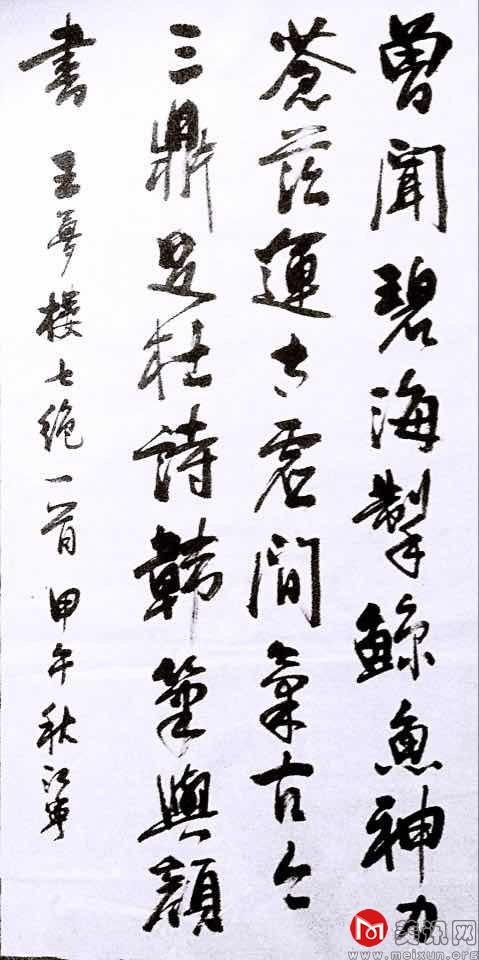 曾聞碧海掣鯨魚神力
蒼茫運太虛間氣古今
三鼎足杜詩韓筆與顏
書 王夢樓七絕一首 甲午秋江
美讯网
www.meixun.org